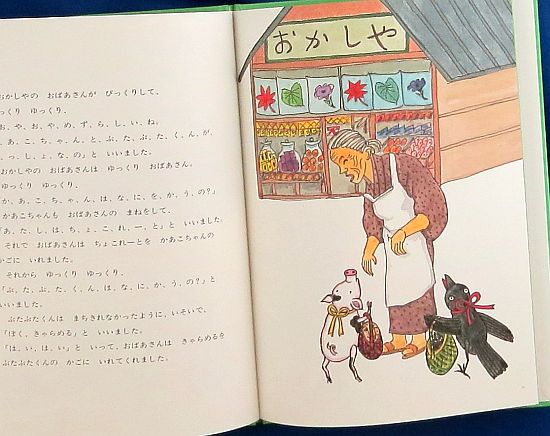 おかしやの おばあさんが びっくりして、
っくり ゆっくり、
お、や、お、や、め、ず、ら、し、い、ね。
、あ、こ、ちゃ、ん、と、ぶ、た、ぶ、た、く、ん、が、
、っ、し、ょ、な、の」と いいました。
おかしやの おばあさんは ゆっくり おばあさん。
ゆっくり ゆっくり、
か、あ、こ、ちゃ、ん、は、な、に、を、か、う、の？」
かあこちゃんも おばあさんの まねをして、
あ、た、し、は、ち、ょ、こ、れ、ー、と」と いいました。
それで おばあさんは ちょこれーとを かあこちゃんの
かごに いれました。
それから ゆっくり ゆっくり、
「ぶ、た、ぶ、た、く、ん、は、な、に、か、う、の？」と
いいました。
ぶたぶたくんは まちきれなかったように、いそいで、
「ぼく、きゃらめる」と いいました。
「は、い、は、い」と いって、おばあさんは きゃらめるを
ぶたぶたくんの かごに いれてくれました。
おかしや